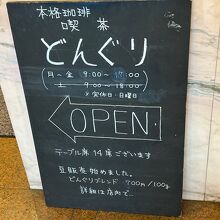 本格珈琲
喫茶
どんぐり
(月～金 9:00～ :00)
土 9:00～18:00
※定休日・日曜日
OPEN
テーブル席14席ございます
豆販売始めました。
どんぐりブレンド 700円/100g
詳細は店内で…